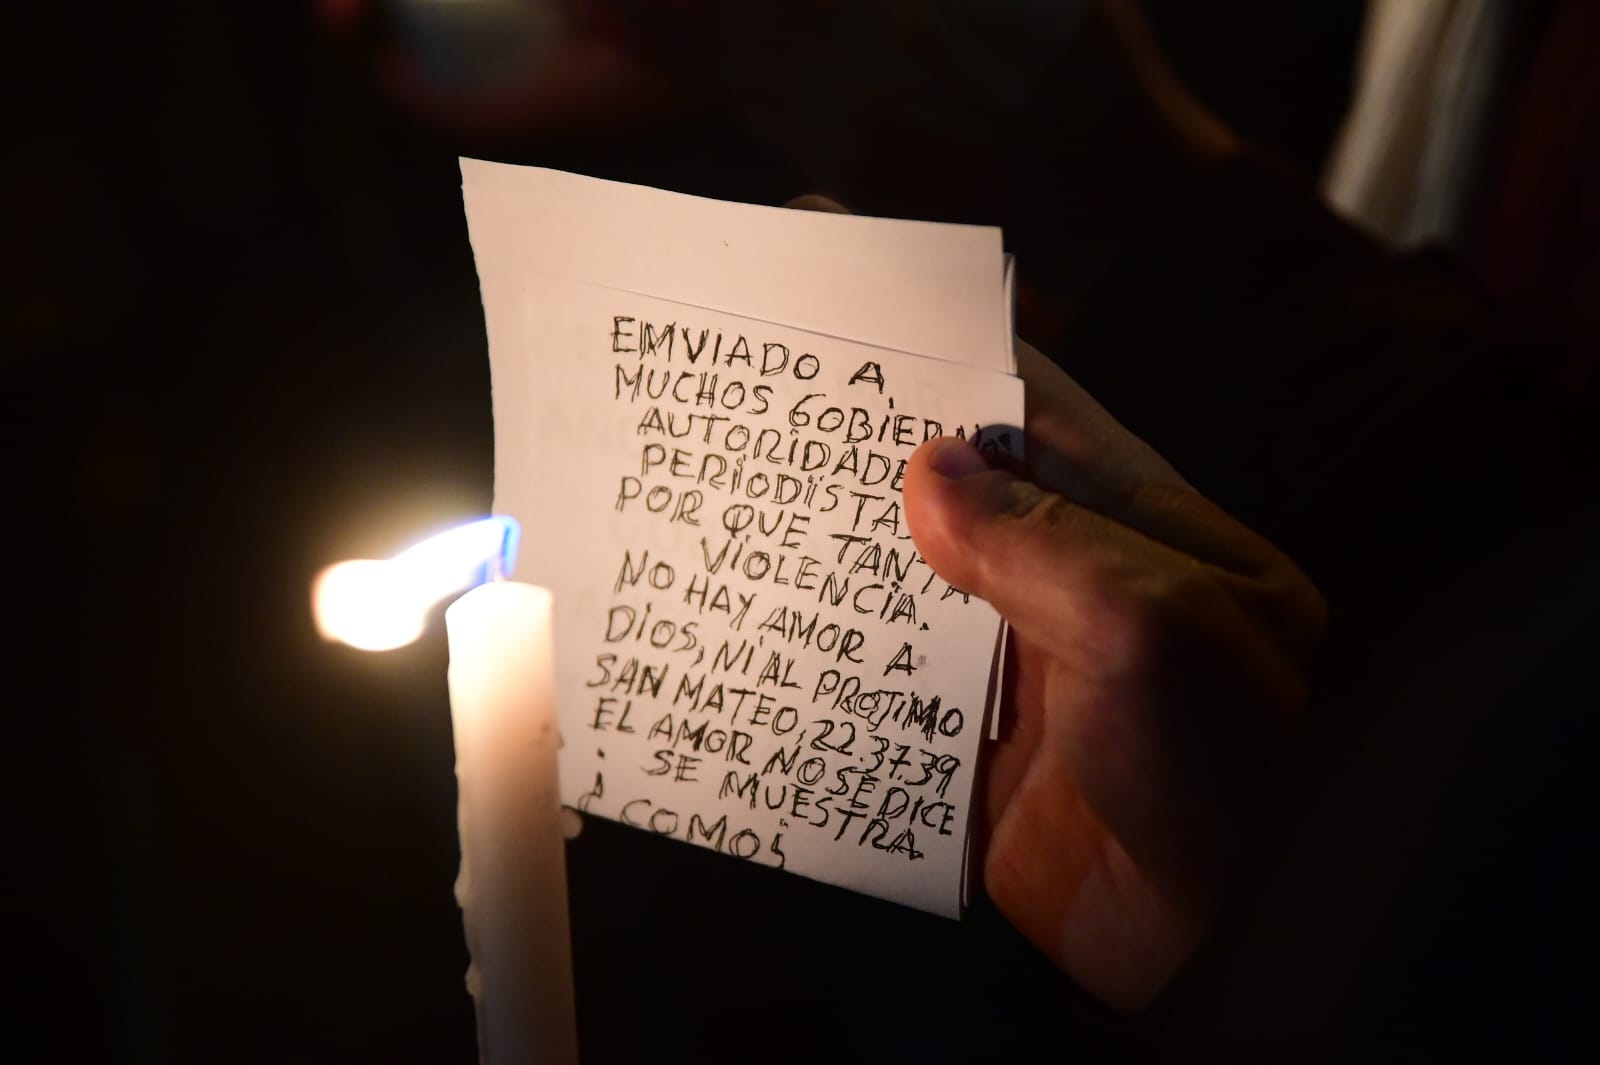 EMVIADO A.
MUCHOS GOBIERNOS
AUTORIDADE
PERIODISTAS
POR QUE TANTA
VIOLENCIA.
NO HAY AMOR A
DIOS, NI AL PROJIMO
SAN MATEO, 22.37.39
EL AMOR NO SE DICE
SE MUESTRA
¿COMO?